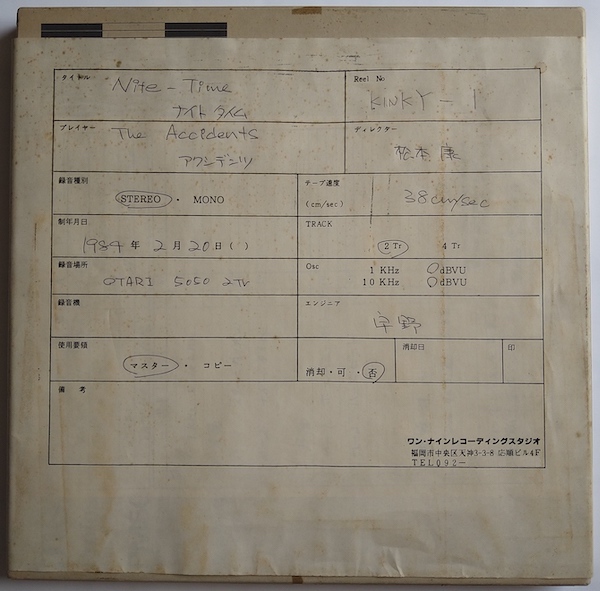 タイトル Nite-Time Reel No
ナイトタイム KINKY-1
プレイヤー The Accidents ディレクター
アクシデンツ 松本康
録音種別 テープ速度
STEREO・MONO (cm/sec) 38cm/sec
制年月日 TRACK
1984年2月20日( ) 2 Tr 4 Tr
録音場所 Osc 1 KHz 0dBVU
OTARI 5050 2Tr 10 KHz 0dBVU
録音機 エンジニア
宇野
使用要領 消却日 印
マスター・コピー 消却・可・否
備考
ワン・ナインレコーディングスタジオ
福岡市中央区天神3-3-8 応順ビル4F
TEL092-